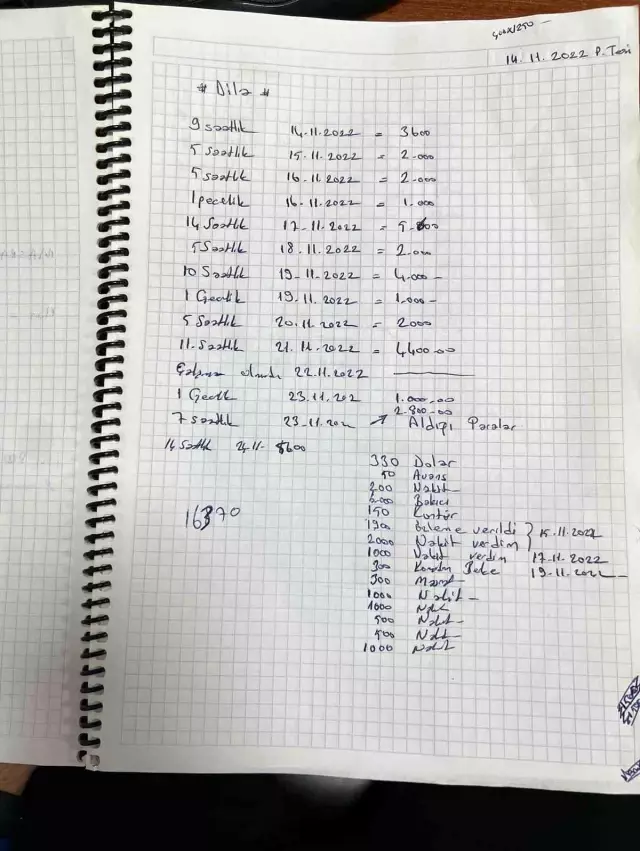 14.11.2022 P.Tesi
# Dila #
9 saatlik 14.11.2022 = 3600
5 saatlik 15.11.2022 = 2.000
5 saatlik 16.11.2022 = 2.000
1 pecelik 16.11.2022 = 1.000
14 Saatlik 17.11.2022 = 5.600
5 Saatlik 18.11.2022 = 2.000
10 Saatlik 19.11.2022 = 4.000-
1 Gecelik 19.11.2022 = 1.000-
5 Saatlik 20.11.2022 = 2000
11. Saatlik 21.11.2022 = 4400.00
22.11.2022
1 Gecelik 23.11.202 1.000.00
2.800.00
7 saatlik 23.11.202 → Aldıgı Paralar
14 Saatlik 24.11- 5600
330 Dolar
50 Avans
200 Nakit
Bakıcı
150 Kontör
verildi
16370
2000 Nakit verdim } 15.11.2022
1000 Nakit verdim 17.11.2022
300 Bebe 19.11.2022-
300
1000 Nakit-
1000 Nakit
500 Nakit-
500 Nakit-
1000 Nakit